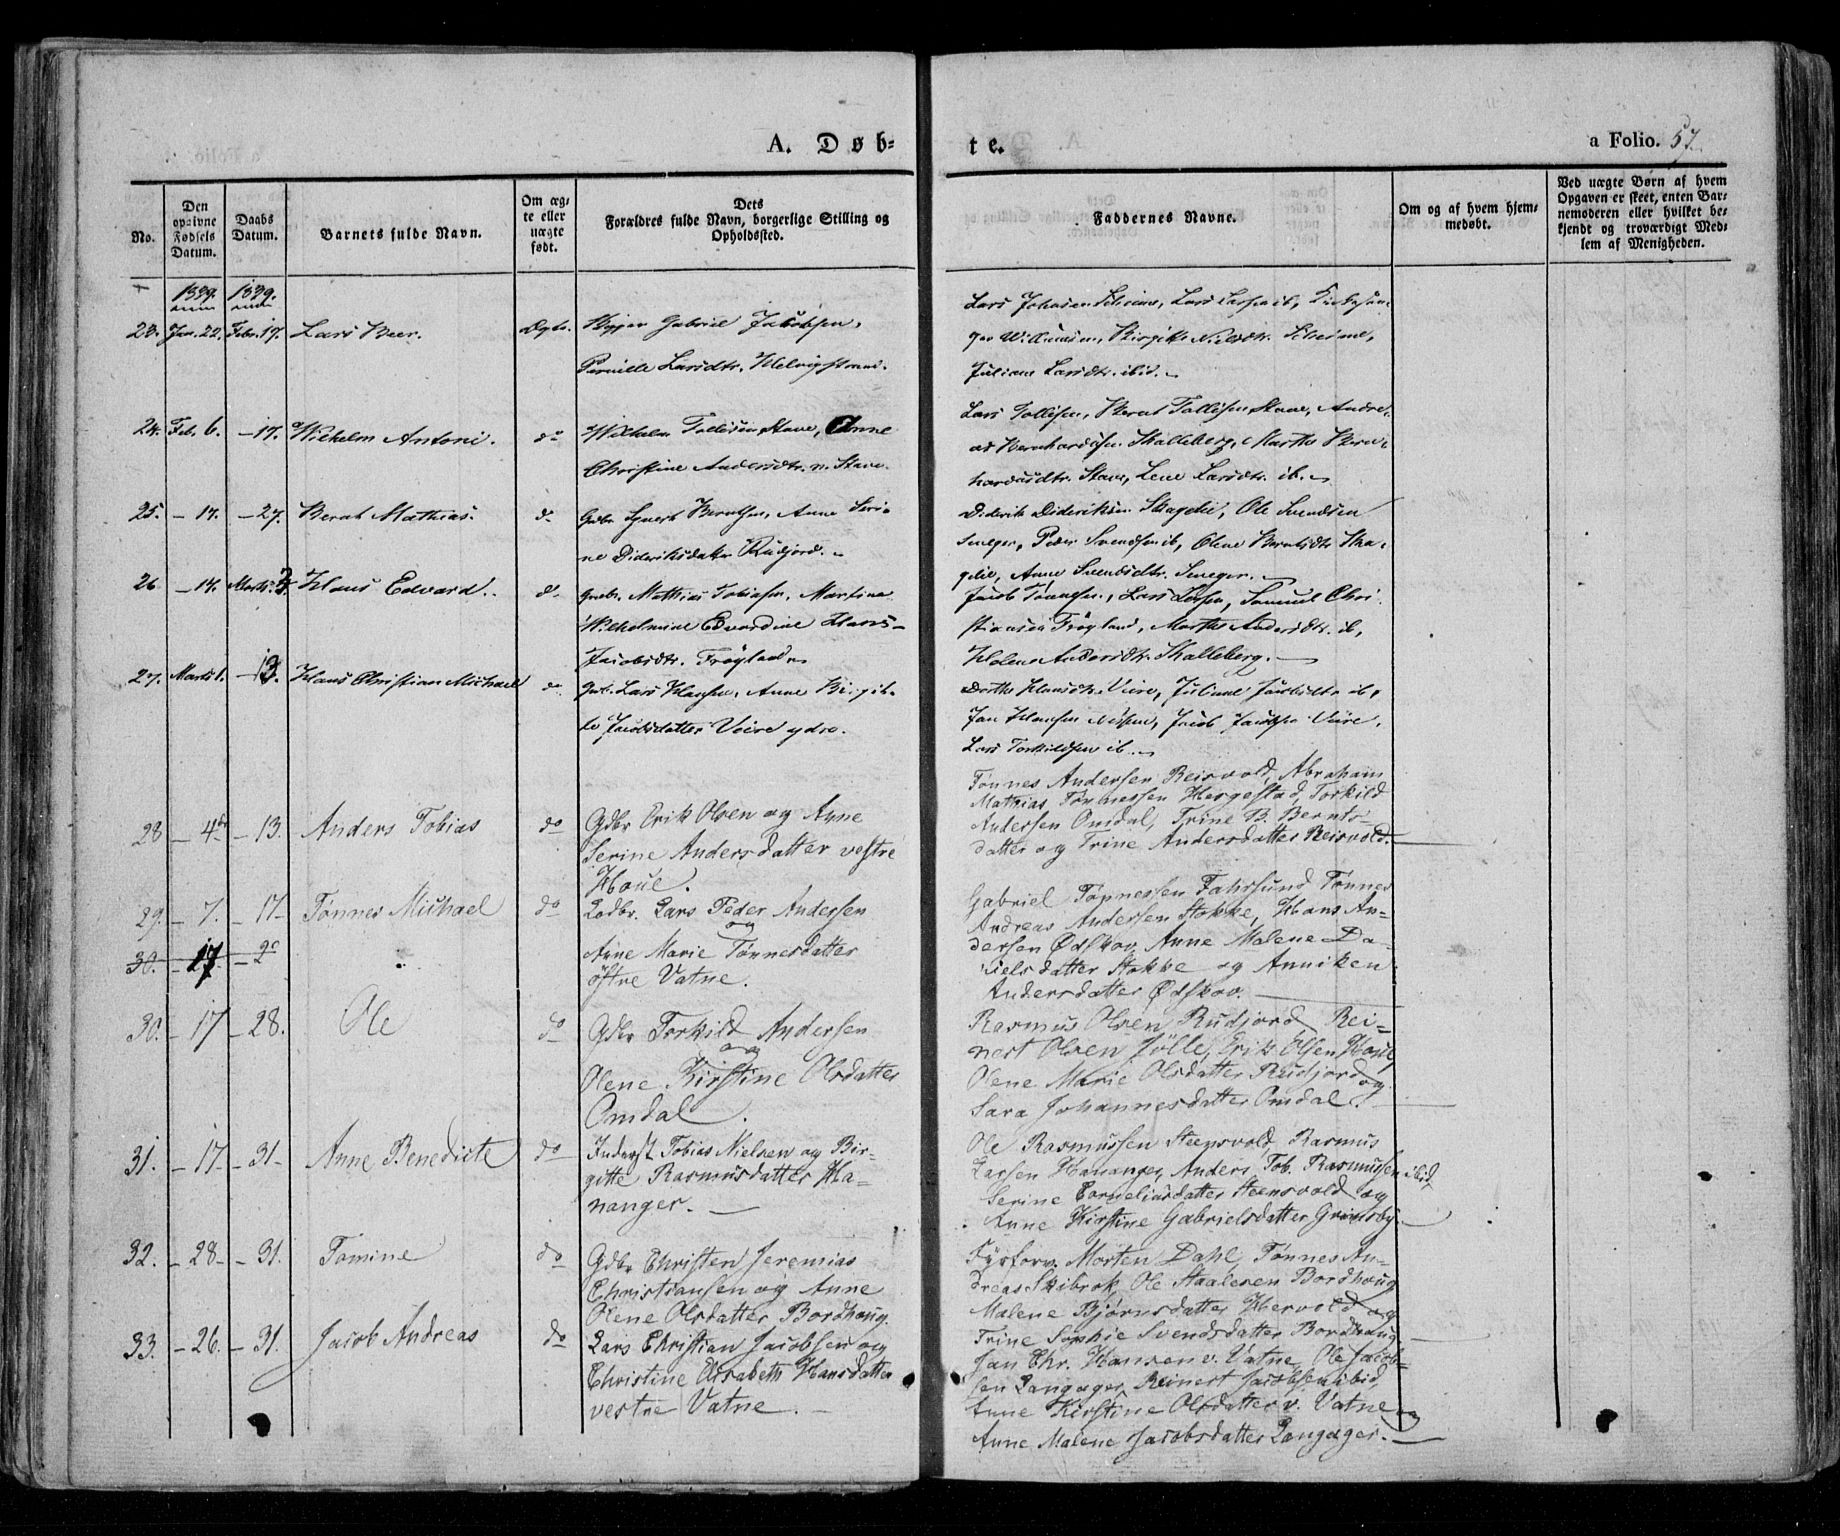 A. Døb=
te.
a Folio. 57.
No.
Den opgivne Fødsels Datum.
Daabs Datum.
Barnets fulde Navn.
Om ægte eller uægte født.
Dets Forældres fulde Navn, borgerlige Stilling og Opholdssted.
Faddernes Navne.
Om og af hvem hjemmedøbt.
Ved uægte Børn af hvem Opgaven er skeet, enten Barnemoderen eller hvilket bekjendt og troværdigt Medlem af Menigheden.
1839. 1839.
23. Jan. 22. Febr. 17. Lars Beer. Ægte. Gabriel Jakobsen,
Pernille Larsdtr. Helvigstrand.
Juliane Larsdtr. ibid.
24. Feb. 6. — 17. Wilhelm Antoni. do Wilhelm Tollisen Stave, Anne
Christine Andersdtr. Stave.
Lars Tollisen, Bernt Tollisen Stave, Andre-
as Bernhardsen Skalleberg, Marthe Bern-
hardsdtr. Stave, Lene Larsdtr. ib.
25. — 17. — 27. Bernt Mathias. do Gdbr. Syvert Berntsen, Anne Seri-
ne Dideriksdatter Rudjord.
Diderik Dideriksen Skagelie, Ole Svendsen
Peder Svendsen ib, Olene Berntsdtr. Ska-
gelie, Anne Svendsdtr.
26 — 14. Marts 3. Hans Edvard. do Gdbr. Mathias Tobiasen, Martine
Wilhelmine Edvardine Hans-
Jacobsdtr. Frøyland
Jacob Tønnesen, Lars Larsen, Samuel Chri-
stiansen Frøyland, Marthe Andersdtr. ib,
Helene Andersdtr. Skalleberg.
27. Marts 1. — 13. Hans Christian Michael do Gdbr. Lars Hansen, Anne Birgit-
te Jacobsdatter Veire ydre.
Dorthe Hansdtr. Veire, Juliane Jacobsdtr. ib,
Jan Hansen Jacob Jacobsen Veire,
Lars Torkildsen ib.
28 — 4de — 13. Anders Tobias do Gdbr Erik Olsen og Anne
Serine Andersdatter vestre
Houe.
Tønnes Andersen Reisvold, Abraham
Mathias Tønnessen Hergestad, Torkild
Andersen Omdal, Trine B. Bernts-
datter og Trine Andersdatter Reisvold.
29. — 7. — 17 — Tønnes Michael do Lodbr. Lars Peder Andersen
og
Anne Marie Tønnesdatter
østre Vatne.
Gabriel Tønnessen Fahrsund Tønnes
Andreas Andersen Stokke, Hans An-
dersen Ødskov Anne Malene Da-
nielsdatter Stokke og Anniken
Andersdatter Ødskov.
30. — 17 — 2
30. — 17 — 28. Ole do Gdbr Torkild Andersen
og
Olene Kirstine Olsdatter
Omdal.
Rasmus Olsen Rudjord, Rei-
nert Olsen Jølle, Erik Olsen Houe,
Olene Marie Olsdatter Rudjord og
Sara Johannesdatter Omdal.
31. — 17 — 31 — Anne Benedicte do Inderst Tobias Nielsen og Bir-
gitte Rasmusdatter Ha-
nanger.
Ole Rasmussen Steensvold, Rasmus
Larsen Hananger, Anders Tob. Rasmussen ibid,
Serine Corneliusdatter Steensvold og
Anne Kirstine Gabrielsdatter Grimsby.
32. — 28 — — 31. Tomine do Gdbr Christen Jeremias
Christiansen og Anne
Olene Olsdatter Bordhoug.
Fyrforv. Morten Dahl, Tønnes An-
dreas Skibrok, Ole Staalesen Bordhoug
Malene Bjørnsdatter Hervold og
Trine Sophie Svendsdatter Bordhoug
33. — 26. — 31. Jacob Andreas do Lars Christian Jacobsen og
Christine Elisabeth Hansdatter
vestre Vatne.
Jan Chr. Hansen v. Vatne, Ole Jacob-
sen Langager, Reinert Jacobsen ibid,
Anne Kirstine Olsdatter v. Vatne og
Anne Malene Jacobsdatter Langager.